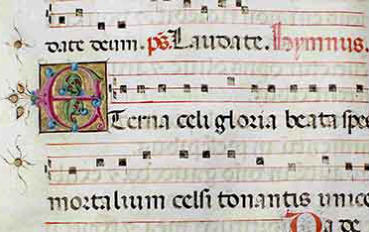 date deum. ps Laudate. Hymnus.
Eterna celi gloria beata spes
mortalium celsi tonantis unice
Da de